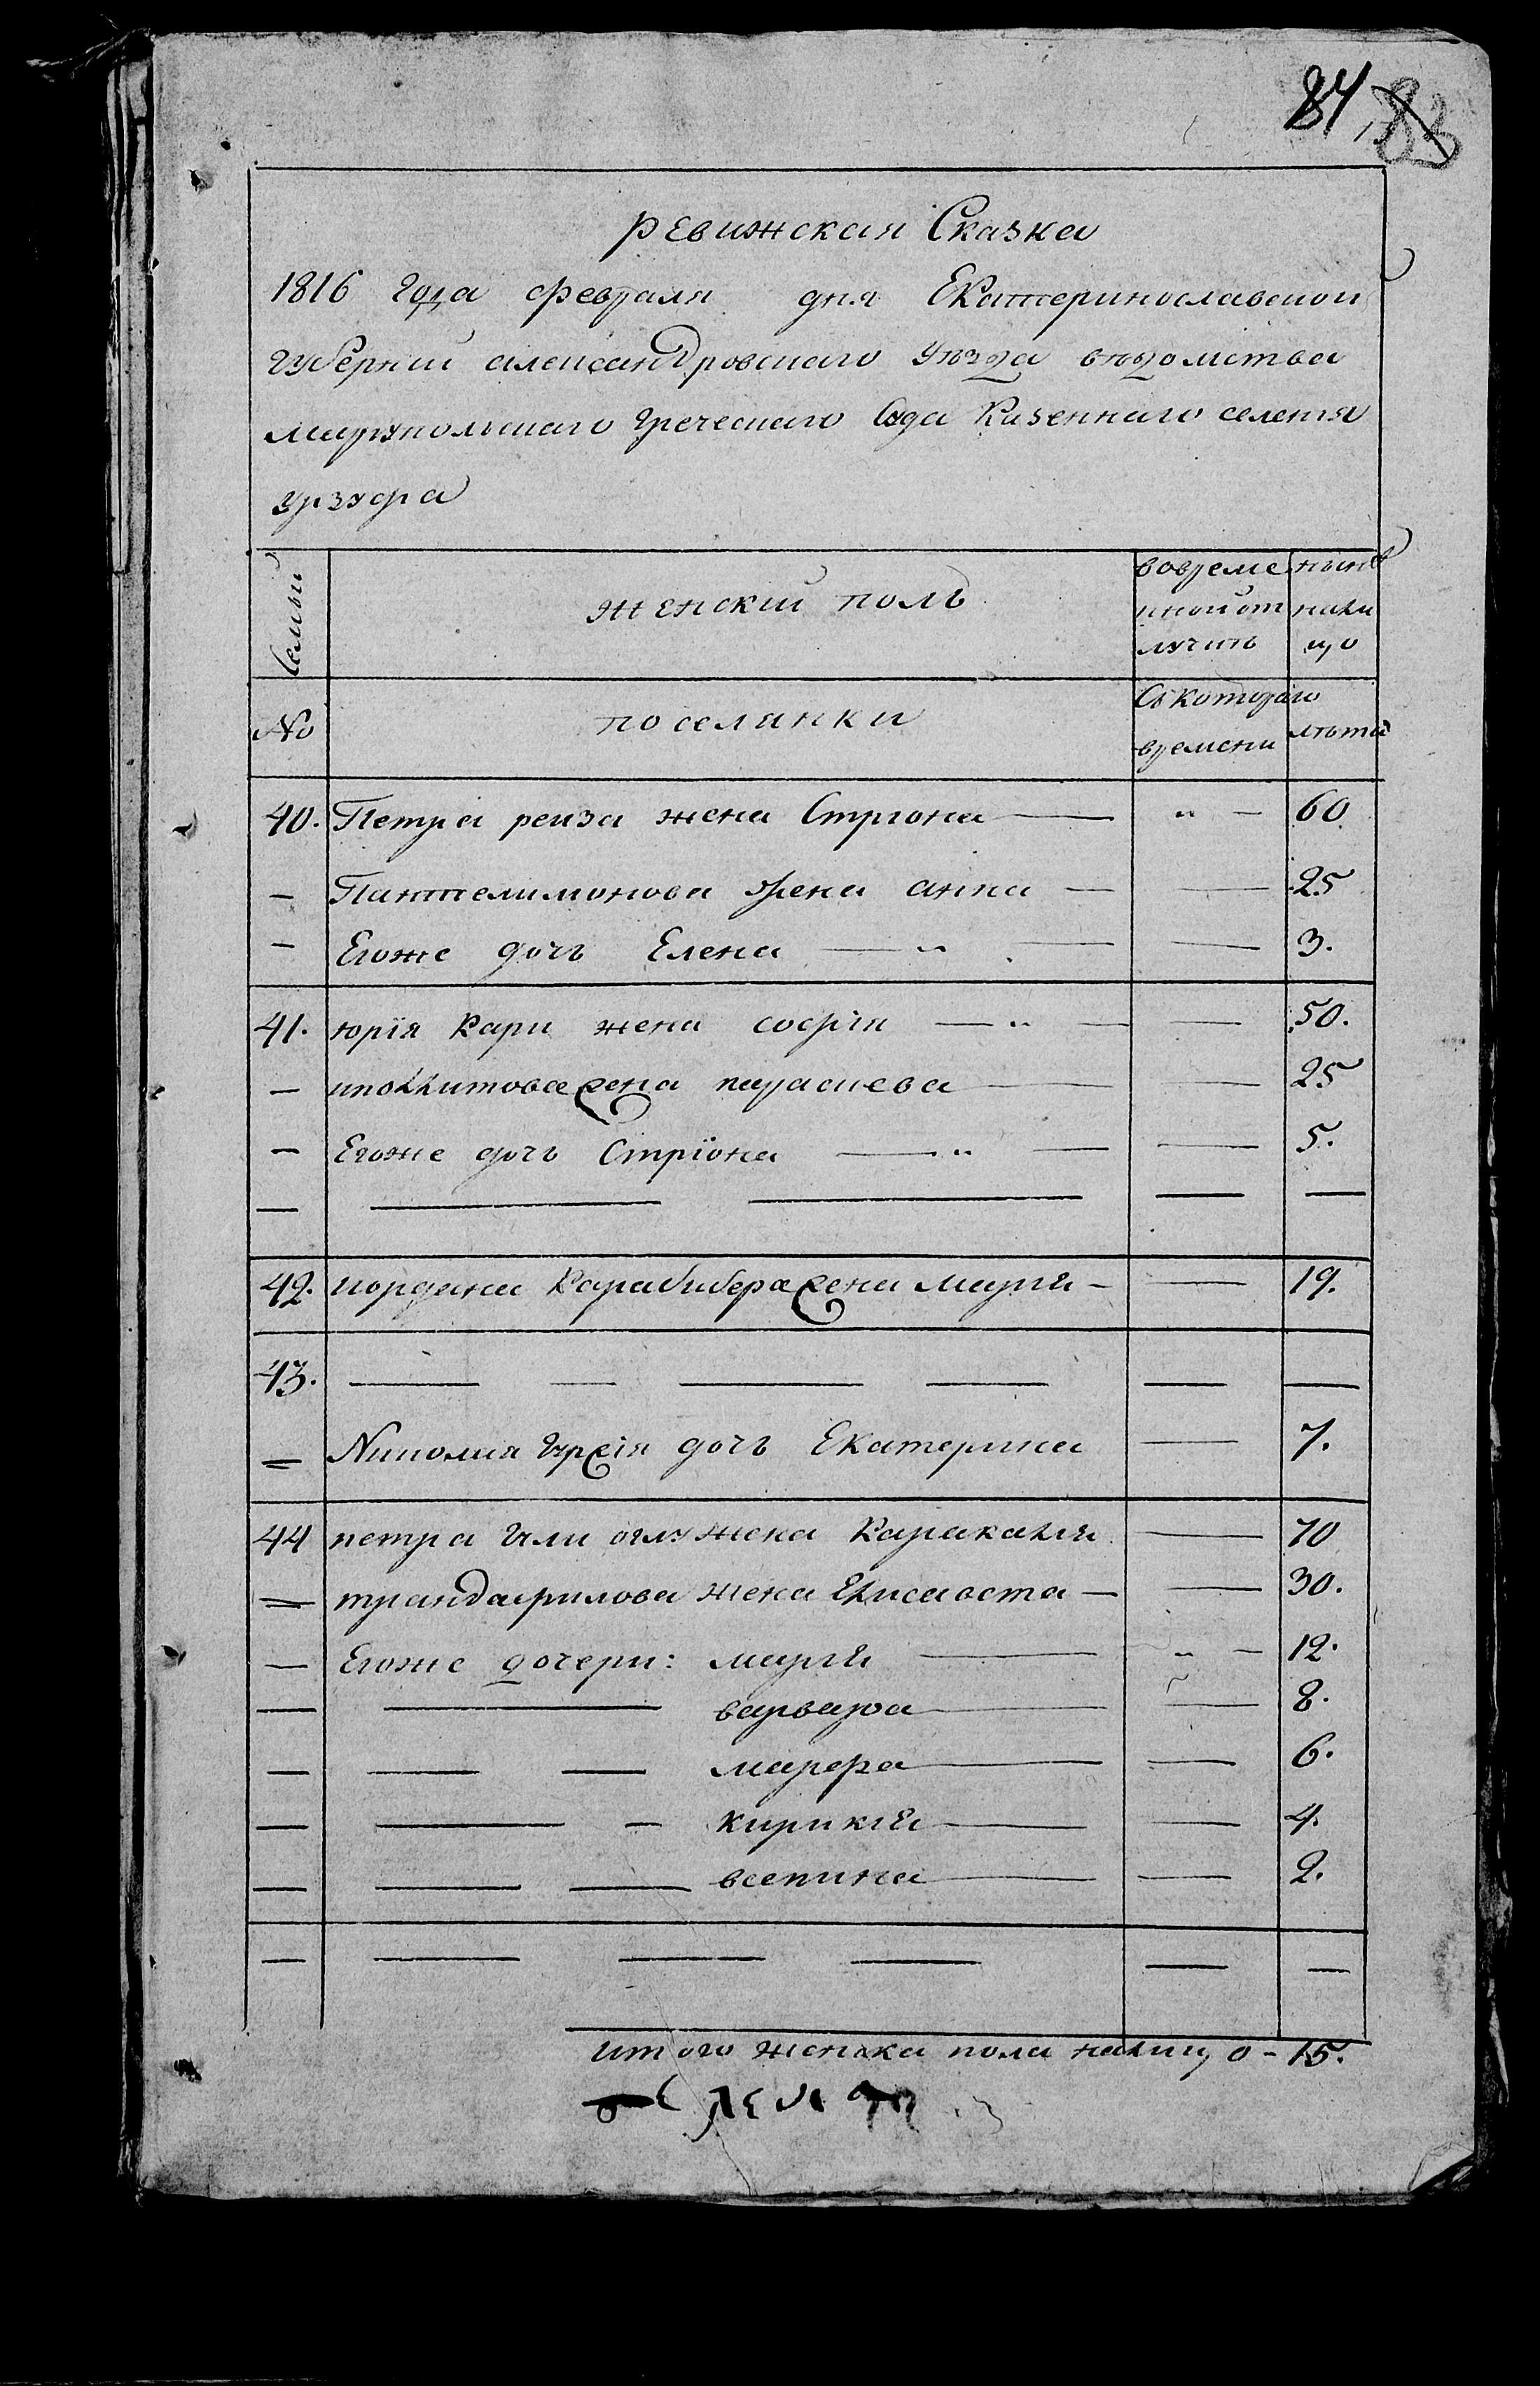 84 83
ревижская Сказка
1816 года февраля дня Екатеринославской
губернии александровскаго уѣзда вѣдомства
мариупольскаго греческаго Суда Казеннаго селения
урзуфа
Семьи
женский полъ
вовреме
нной от
лучиѣ
нынѣ
нали
цо
№
поселянки
Съ котораго
времени
лѣта
40. Петра реиза жена Стриона — " — 60
— Пантелимонова жена анна — — 25
— Егоже дочь Елена — " — — 3.
41. юрія Кари жена софія — " — — 50.
— иполлитова жена параскева — — 25
— Егоже дочь Стріона — " — — 5.
— — — — —
42. иордана Карабибера жена марія — — 19.
43. — — — — — —
= Николия дочь Екатерина — 7.
44 петра оглу жена Каракали — 70
= трандафилова жена Елисавета — — 30.
— Егоже дочери: марія — " — 12.
— — варвара — — 8.
— — — марфа — — 6.
— — — кирикія — — 4.
— — — — — 2.
— — — — — —
итого женска пола налицо - 15.